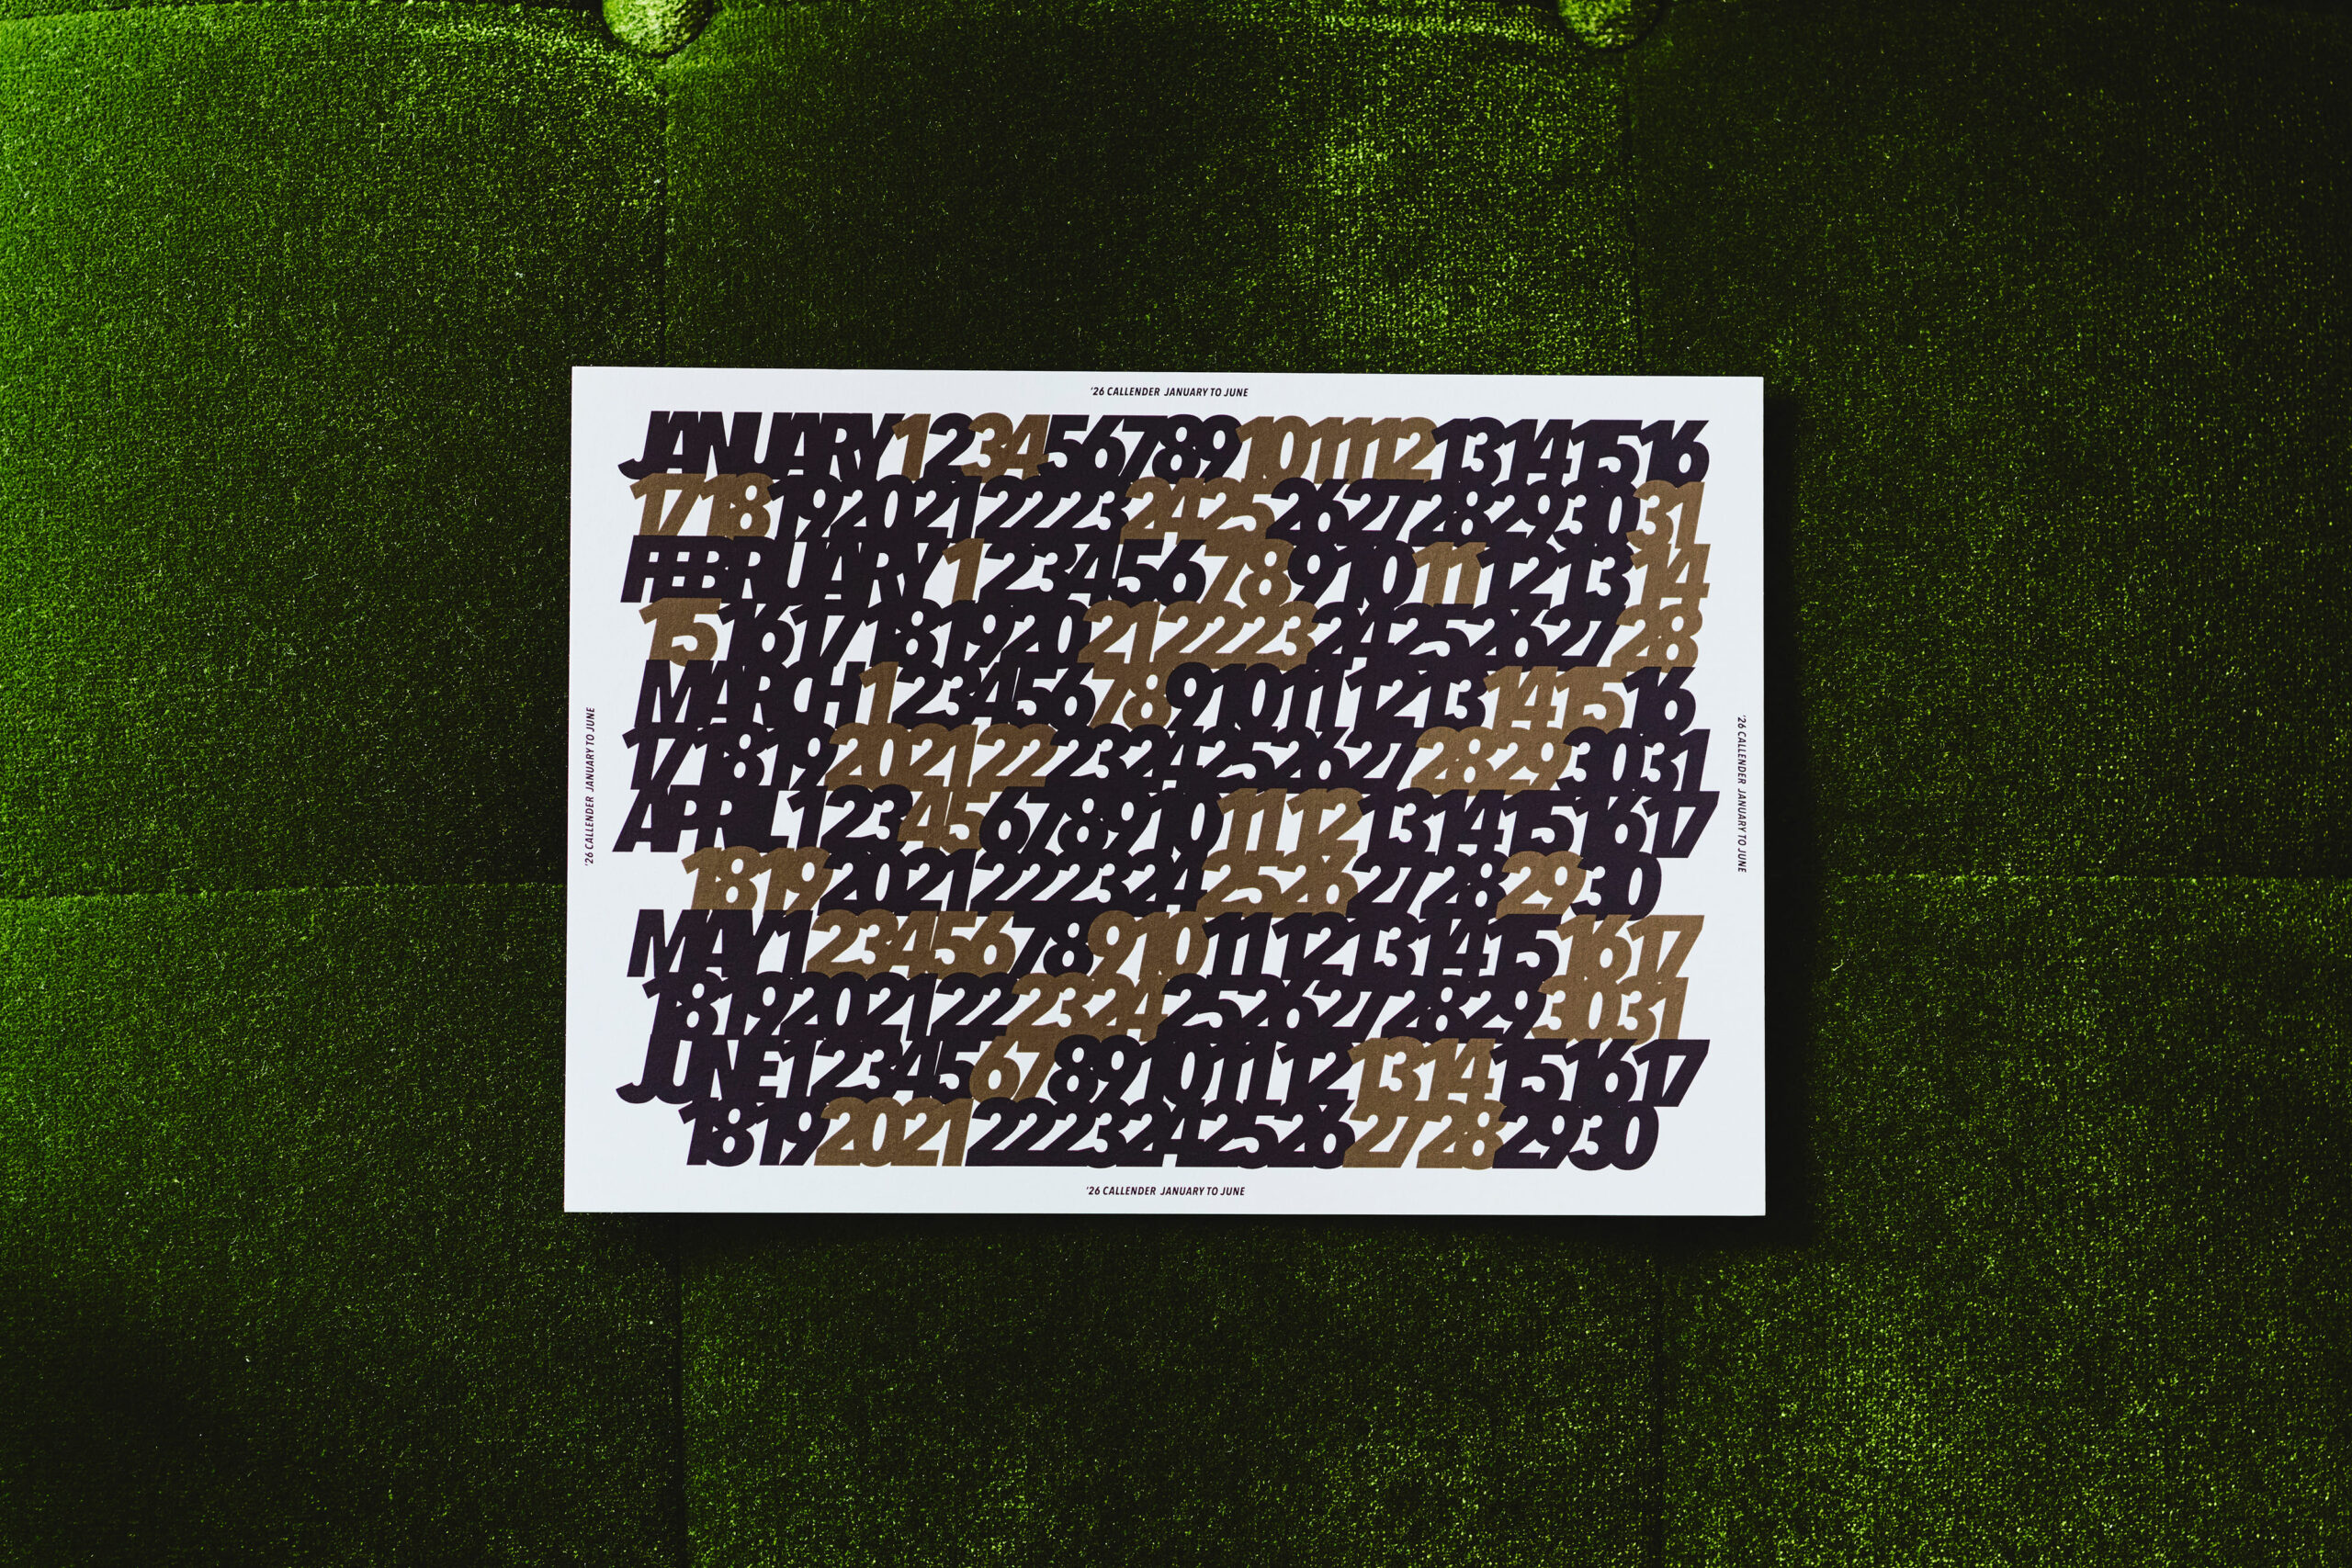 '26 CALLENDER JANUARY TO JUNE
JANUARY 1 2 3 4 5 6 7 8 9 10 11 12 13 14 15 16
17 18 19 20 21 22 23 24 25 26 27 28 29 30 31
FEBRUARY 1 2 3 4 5 6 7 8 9 10 11 12 13 14
15 16 17 18 19 20 21 22 23 24 25 26 27 28
MARCH 1 2 3 4 5 6 7 8 9 10 11 12 13 14 15 16
17 18 19 20 21 22 23 24 25 26 27 28 29 30 31
APRIL 1 2 3 4 5 6 7 8 9 10 11 12 13 14 15 16 17
18 19 20 21 22 23 24 25 26 27 28 29 30
MAY 1 2 3 4 5 6 7 8 9 10 11 12 13 14 15 16 17
18 19 20 21 22 23 24 25 26 27 28 29 30 31
JUNE 1 2 3 4 5 6 7 8 9 10 11 12 13 14 15 16 17
18 19 20 21 22 23 24 25 26 27 28 29 30
'26 CALLENDER JANUARY TO JUNE
'26 CALLENDER JANUARY TO JUNE
'26 CALLENDER JANUARY TO JUNE